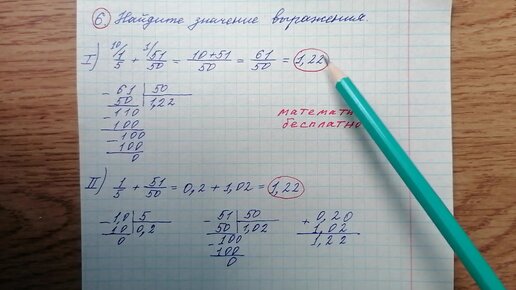 6. Найдите значение выражения.
I) 10/ 1/5 + 1/ 51/50 = (10+51)/50 = 61/50 = 1,22
- 61 | 50
50 | 1,22
- 110
100
- 100
100
0
математ
бесплатно
II) 1/5 + 51/50 = 0,2 + 1,02 = 1,22
- 1,0 | 5
1 0 | 0,2
0
- 51 | 50
50 | 1,02
- 100
100
0
+ 0,20
1,02
1,22